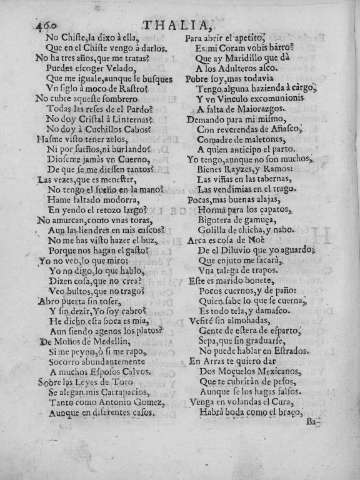 460 THALIA,
No Chiste, la dixo à ella,
Que en el Chiste vengo à darlos.
No ha tres años, que me tratas?
Puedes escoger Velado,
Que me iguale, aunque le busques
Vn siglo à moco de Rastro?
No cubre aqueste sombrero
Todas las reses de el Pardo?
No doy Cristal à Linternas?
No doy à Cuchillos Cabos?
Hasme visto tener zelos,
Ni por sueños, ni burlando?
Diosme jamàs vn Cuerno,
De que se me diessen tantos?
Las vezes, que es menester,
No tengo el sueño en la mano?
Hame faltado modorra,
En yendo el retozo largo?
No anuncio, como vnas toras,
Aun las liendres en mis cascos?
No me has visto hazer el buz,
Porque nos hagan el gasto?
Yo no veo, lo que miro;
Yo no digo, lo que hablo,
Dizen cosa, que no crea?
Veo bultos, que no trago?
Abro puerta sin toser,
Y sin dezir, Yo soy cabro?
He dicho esta boca es mia,
Aun siendo agenos los platos?
De Moños de Medellin,
Si me peyno, ò si me rapo,
Socorro abundantemente
A muchos Esposos Calvos.
Sobre las Leyes de Toro
Se alegan mis Cartapacios,
Tanto como Antonio Gomez,
Aunque en diferentes casos.
Para abrir el apetito,
Es mi Coram vobis barro?
Que ay Maridillo que dà
A los Adulteros asco.
Pobre soy, mas todavia
Tengo alguna hazienda à cargo,
Y vn Vinculo excomunionis
A falta de Maiorazgos.
Demando para mi mismo,
Con reverendas de Añasco,
Comadre de maletones,
A quien anticipo el parto.
Yo tengo, aunque no son muchos,
Bienes Rayzes, y Ramos:
Las viñas en las tabernas,
Las vendimias en el trago.
Pocas, mas buenas alajas,
Horma para los çapatos,
Bigotera de gamuça,
Golilla de chicha, y nabo.
Arca es cola de Noè
De el Diluvio que yo aguardo;
Que enjuto me sacarà,
Vna talega de trapos.
Este es marido bonete,
Pocos cuernos, y de paño:
Quien sabe lo que se cuerna,
Es todo tela, y damasco.
Vestirè sin almohadas,
Gente de estera de esparto,
Sepa, que sin graduarse,
No puede hablar en Estrados.
En Arras te quiero dar
Dos Moçuelos Mexicanos,
Que te cubriràn de pesos,
Aunque se los hagas falsos.
Venga en volandas el Cura,
Habrà boda como el braço,
Ba-